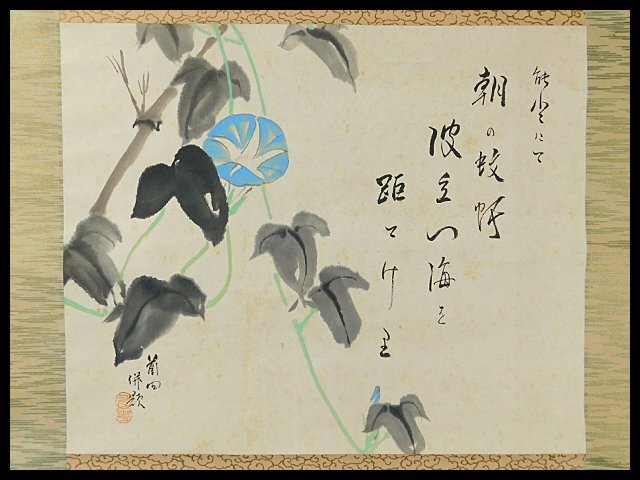 能登にて
朝の蚊帳
波立つ海を
距てけり
併題